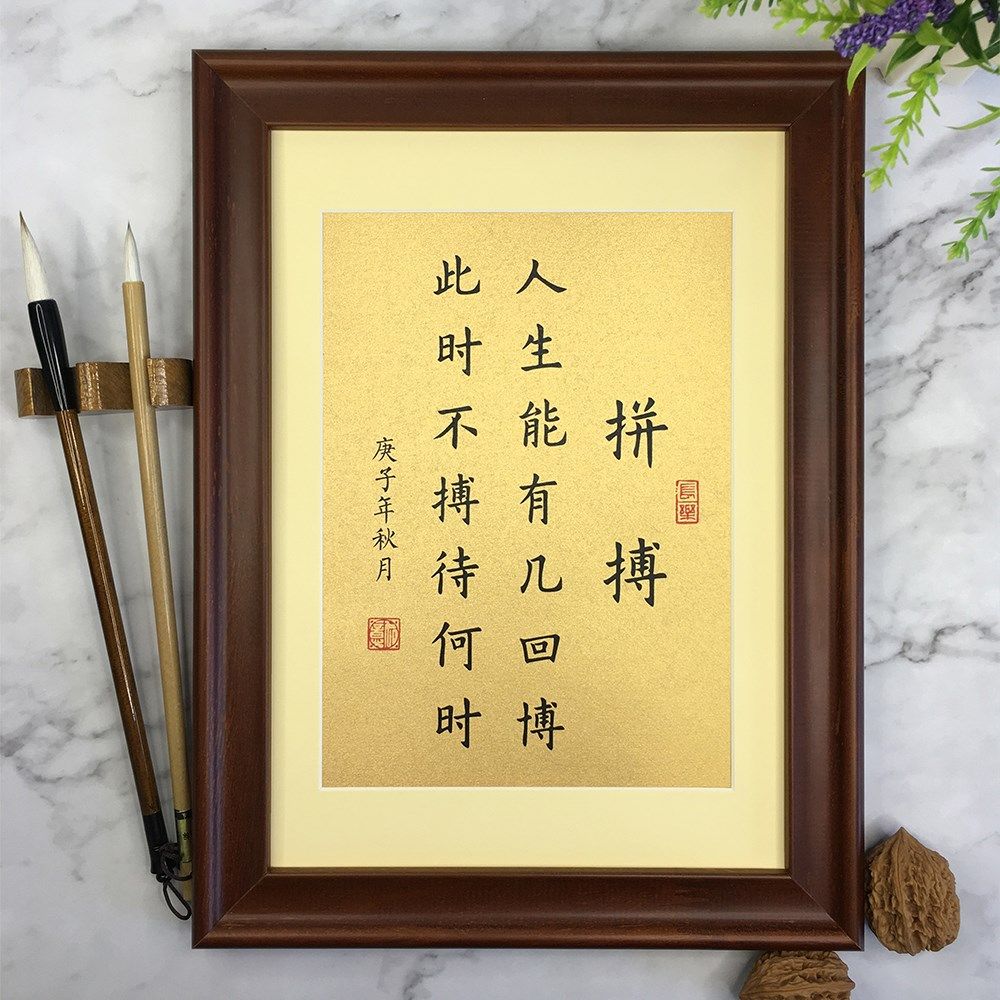 拼搏
長樂
人生能有几回博
此时不搏待何时
庚子年秋月